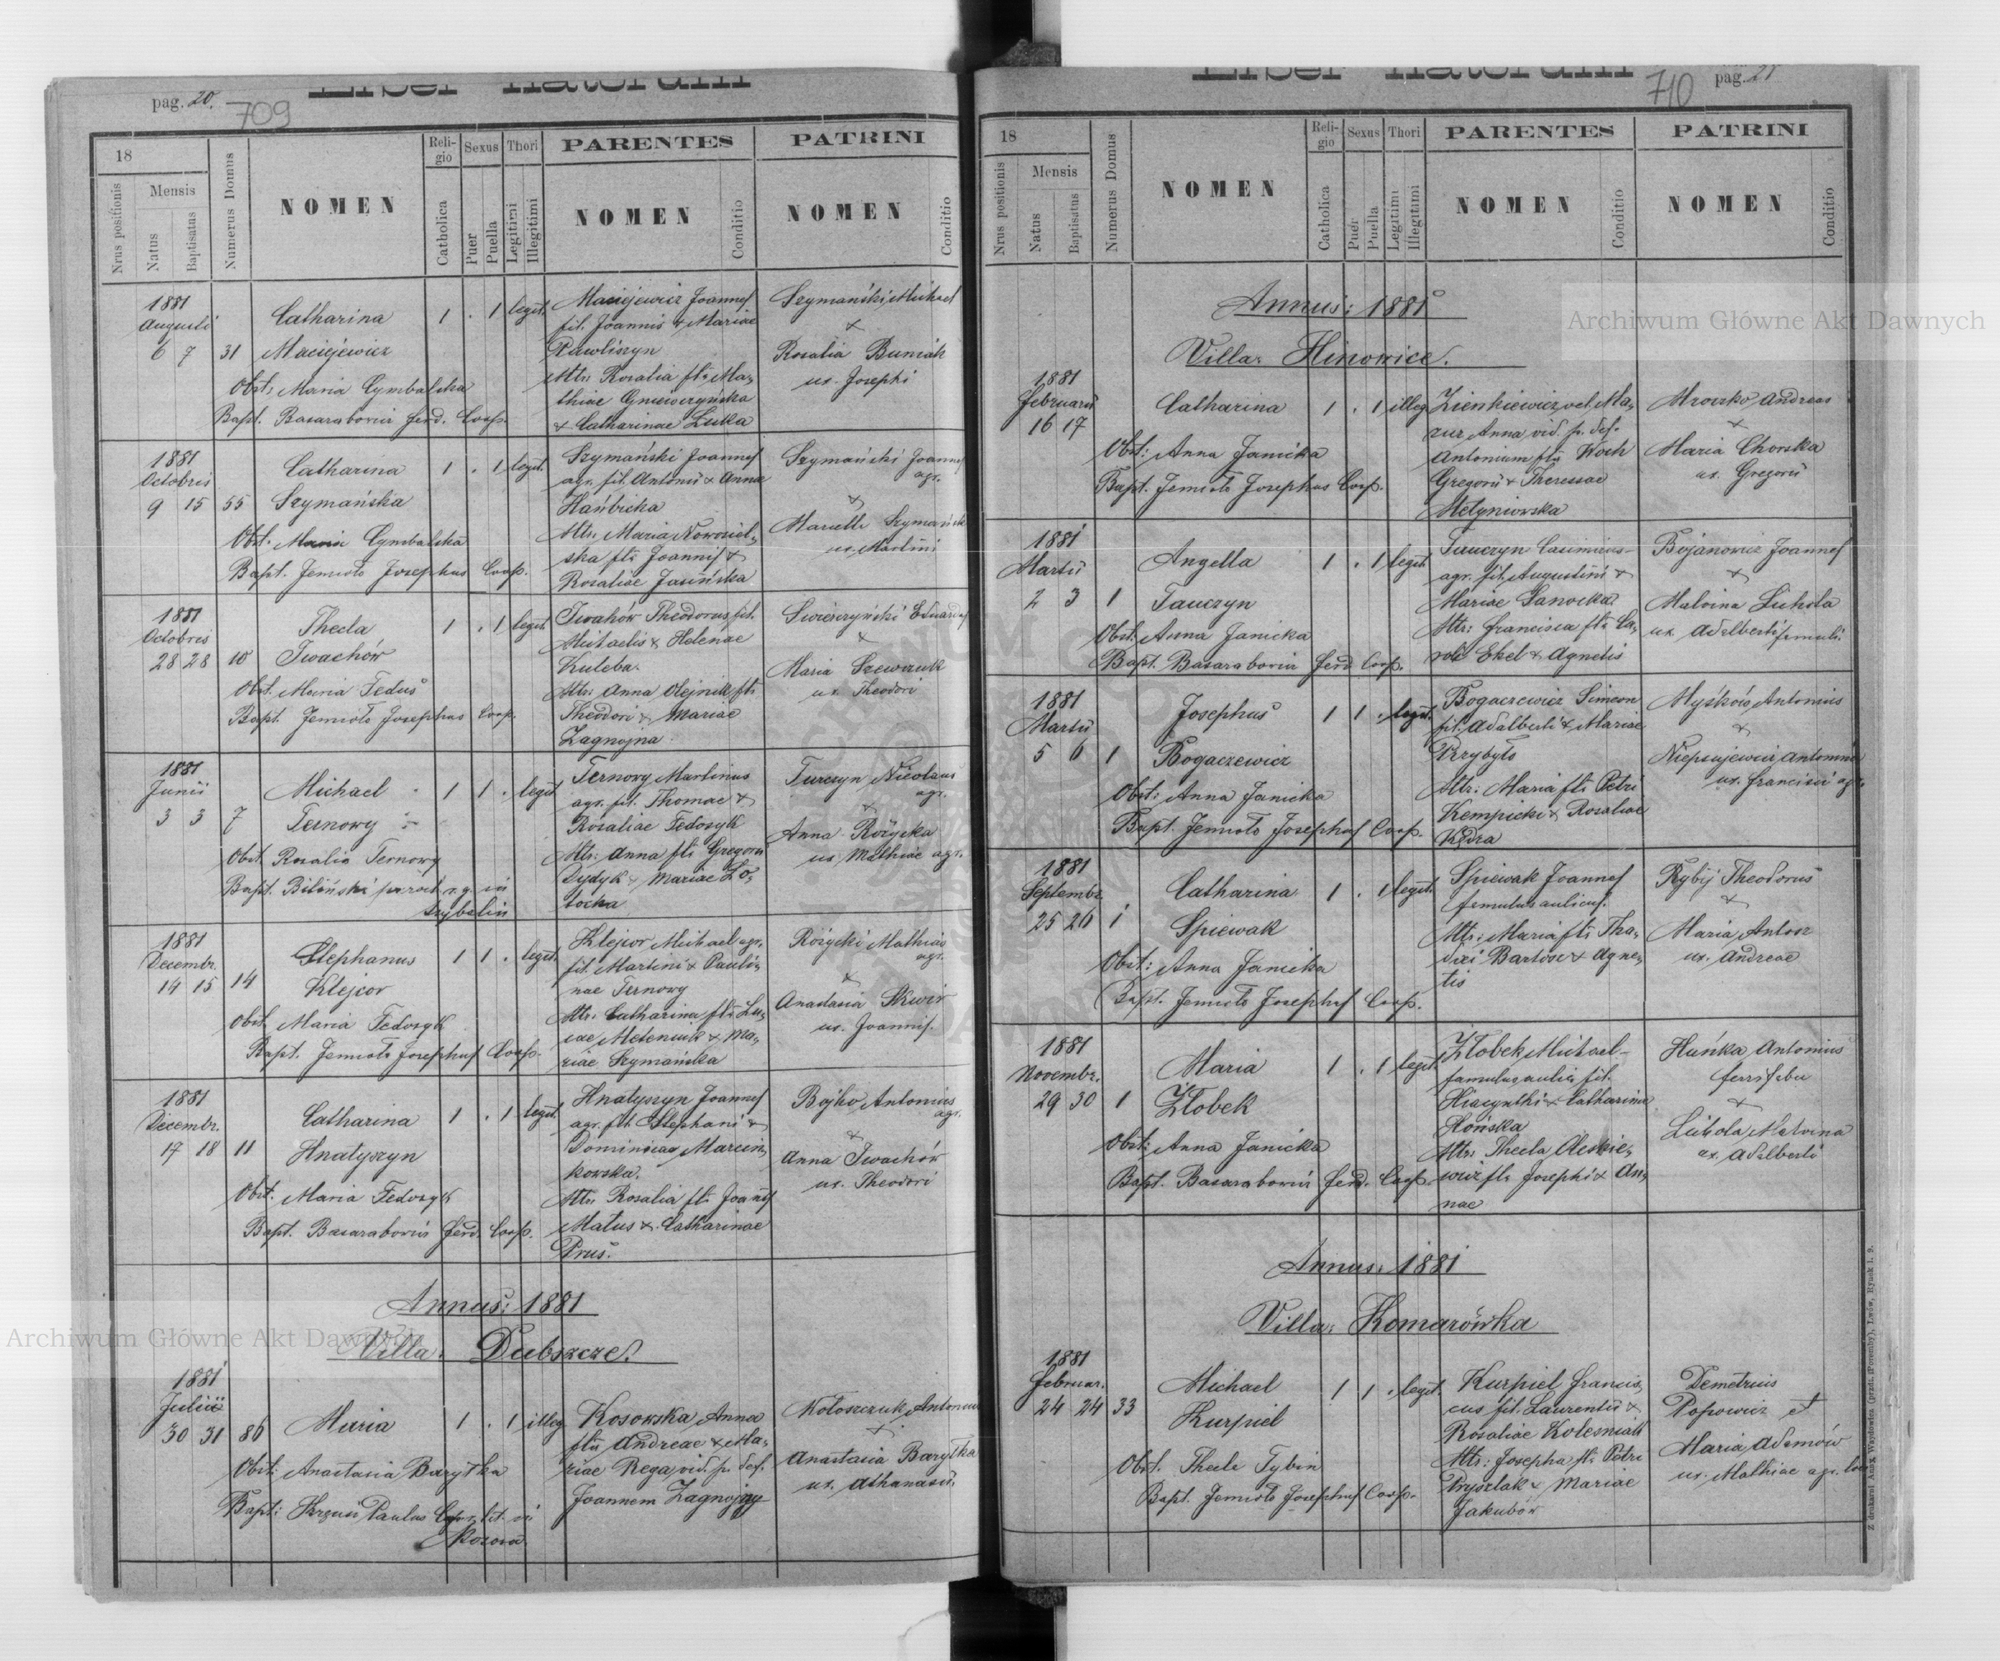 Liber natorum
pag. 20.
709
18
Nrus positionis
Mensis
Natus
Baptisatus
Numerus Domus
NOMEN
Religio
Catholica
Sexus
Puer
Puella
Thori
Legitimi
Illegitimi
PARENTES
NOMEN
Conditio
PATRINI
NOMEN
Conditio
1881
Augusti
6 7 31
Catharina
Maciejewicz
1 . 1 legit.
Obst: Maria Cymbalska
Bapt. Basarabowicz Ferd. Coop.
Maciejewicz Joannes
fil. Joannis & Mariae
Pawliszyn
Mtr: Rosalia flia Ma-
thiae Gniewczyńska
& Catharinae Lutka
Szymański Michael
&
Rosalia Buniak
ux. Josephi
1881
Octobris
9 15 55
Catharina
Szymańska
1 . 1 legit.
Obst. Maria Cymbalska
Bapt. Jemioło Josephus Coop.
Szymański Joannes
agr. fil. Antonii & Annae
Hańbicka
Mtr: Maria Nowosiel-
ska flia Joannis &
Rosaliae Jasińska
Szymański Joannes
agr.
&
Szymańsk
ux. Martini
1881
Octobris
28 28 10
Thecla
Iwachów
1 . 1 legit.
Obst. Maria Feduś
Bapt. Jemioło Josephus Coop.
Iwachów Theodorus fil.
Michaelis & Helenae
Kuleba.
Mtr: Anna Olejnik flia
Theodori & Mariae
Zagnojna.
Swierczyński Eduardus
&
Maria Szewczuk
ux. Theodori
1881
Junii
3 3 7
Michael
Ternowy
1 1 . legit.
Obst. Rosalia Ternowy
Bapt. Biliński paroch r. g. in
Szybalin
Ternowy Martinus
agr. fil. Thomae &
Rosaliae Fedosyk
Mtr: Anna flia Gregorii
Dydyk & Mariae Zo-
tocka
Turczyn Nicolaus
agr.
&
Anna Różycka
ux. Mathiae agr.
1881
Decembr.
14 15 14
Stephanus
Klejcor
1 1 . legit.
Obst. Maria Fedosyk
Bapt. Jemioło Josephus Coop.
Klejcor Michael agr.
fil. Martini & Pauli-
nae Ternowy
Mtr: Catharina flia Lu-
cae Meteniuk & Ma-
riae Szymańska
Różycki Mathias
agr.
&
Anastasia Skwir
ux. Joannis.
1881
Decembr.
17 18 11
Catharina
Hnatyszyn
1 . 1 legit.
Obst. Maria Fedosyk
Bapt. Basarabowicz Ferd. Coop.
Hnatyszyn Joannes
agr. fil. Stephani &
Dominicae Marcin-
kowska.
Mtr: Rosalia flia Joannis
Matus & Catharinae
Prus.
Bojko Antonius
agr.
&
Anna Iwachów
ux. Theodori
Annus: 1881
Villa: Dubszcze.
1881
Julii
30 31 86
Maria
1 . 1 illeg.
Obst: Anastasia Baryłka
Bapt: Paulus
Kozowa
Kosowska Anna
flia Andreae & Ma-
riae Rega, vid. p. def.
Joannem Zagnojny
Kołoszczuk Antonius
&
Anastasia Baryłka
ux. Athanasii.
Liber natorum
710
pag. 21
18
Nrus positionis
Mensis
Natus
Baptisatus
Numerus Domus
NOMEN
Religio
Catholica
Sexus
Puer
Puella
Thori
Legitimi
Illegitimi
PARENTES
NOMEN
Conditio
PATRINI
NOMEN
Conditio
Annus: 1881
Villa: Hinowice.
1881
Februarii
16 17
Catharina
1 . 1 illeg.
Obst: Anna Janicka
Bapt. Jemioło Josephus Coop.
Zienkiewicz vel Ma-
zur Anna vid. p. def.
Antonium flia Woch
Gregorii & Theresae
Metyniowska
Mroczko Andreas
&
Maria Chorska
ux. Gregorii
1881
Martii
2 3 1
Angella
Tauczyn
1 . 1 legit.
Obst. Anna Janicka
Bapt. Basarabowicz Ferd. Coop.
Tauczyn Casimirus
agr. fil. Augustini &
Mariae Sanocka.
Mtr: Francisca flia Ca-
roli Ekel & Agnetis
Bojanowicz Joannes
&
Malvina Lichota
ux. Adalberti famuli.
1881
Martii
5 6 1
Josephus
Bogaczewicz
1 1 . legit.
Obst: Anna Janicka
Bapt. Jemioło Josephus Coop.
Bogaczewicz Simeon
fil. Adalberti & Mariae
Przybyło
Mtr. Maria flia Petri
Kempicki & Rosaliae
Kędra
Myśków Antonius
&
Niepsujewicz Antonina
ux. Francisci agr.
1881
Septembr.
25 26 1
Catharina
Spiewak
1 . 1 legit.
Obst: Anna Janicka
Bapt. Jemioło Josephus Coop.
Spiewak Joannes
famulus aulicus.
Mtr: Maria flia Tha-
daei Bartosz & Agne-
tis
Rybij Theodorus
&
Maria Antosz
ux. Andreae
1881
Novembr.
29 30 1
Maria
Żłobek
1 . 1 legit.
Obst: Anna Janicka
Bapt. Basarabowicz Ferd. Coop.
Żłobek Michael
famulus aulic. fil.
Hiacynthi & Catharinae
Hońska
Mtr: Thecla Aleskie-
wicz flia Josephi & An-
nae
Hańka Antonius
&
Lichota Malvina
ux. Adalberti
Annus: 1881
Villa: Komarówka
1881
Februar.
24 24 33
Michael
Kurpiel
1 1 . legit.
Obst. Thecla Tybin
Bapt. Jemioło Josephus Coop.
Kurpiel Francis-
cus fil. Laurentii &
Rosaliae Kolesniak
Mtr: Josepha flia Petri
Pryszlak & Mariae
Jakubów
Demetrius
Popowicz et
Maria Adamów
ux. Mathiae agr.
Z drukarni Anny Wajdowicz (przdt. iPoremby), Lwów, Rynek l. 9.
Archiwum Główne Akt Dawnych
Archiwum Główne Akt Dawnych